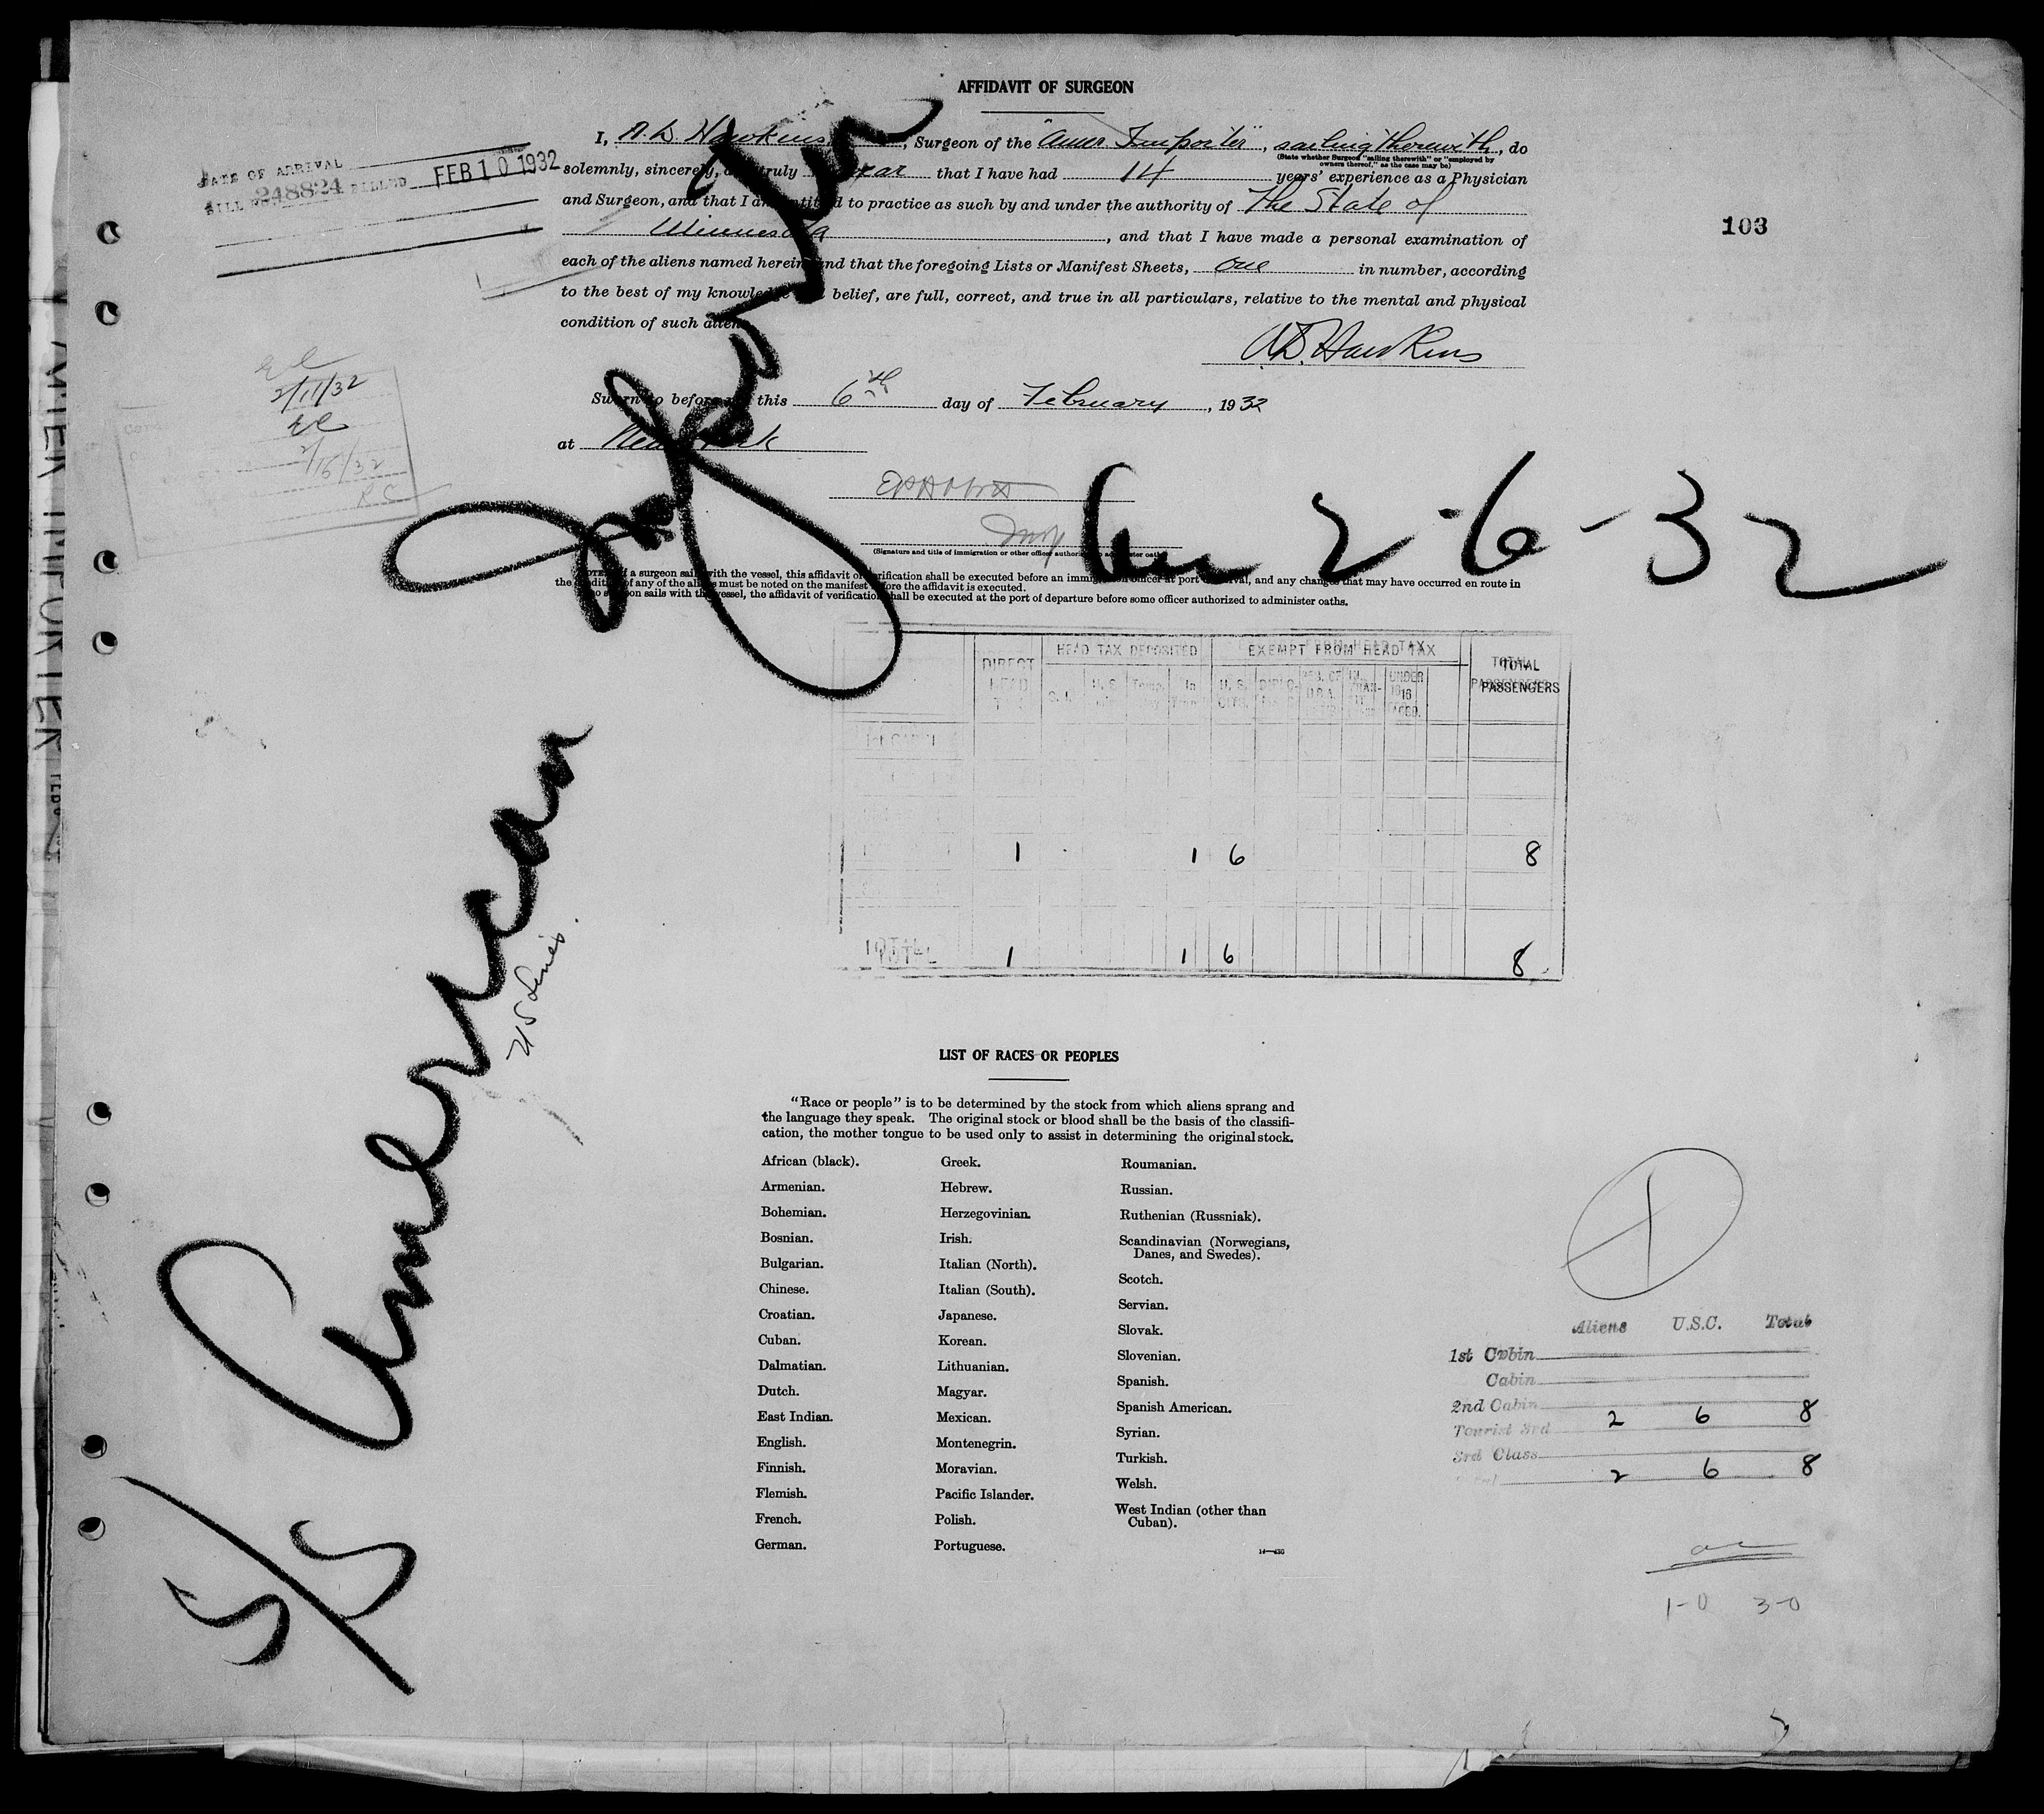 AFFIDAVIT OF SURGEON
I, A. D. Hawkins, Surgeon of the "Amer. Importer", sailing therewith, do
(State whether Surgeon "sailing therewith" or "employed by
owners thereof," as the case may be)
solemnly, sincerely, and truly swear that I have had 14 years' experience as a Physician
and Surgeon, and that I am entitled to practice as such by and under the authority of The State of
Minnesota, and that I have made a personal examination of
each of the aliens named herein and that the foregoing Lists or Manifest Sheets, one in number, according
to the best of my knowledge and belief, are full, correct, and true in all particulars, relative to the mental and physical
condition of such aliens
A.D. Hawkins
Sworn to before me this 6th day of February, 1932
at New York
Insp
(Signature and title of immigration or other officer authorized to administer oaths)
NOTE.—If a surgeon sails with the vessel, this affidavit of verification shall be executed before an immigration officer at port of arrival, and any changes that may have occurred en route in
the condition of any of the aliens must be noted on the manifest before the affidavit is executed.
If no surgeon sails with the vessel, the affidavit of verification shall be executed at the port of departure before some officer authorized to administer oaths.
DATE OF ARRIVAL
BILL NO. 248824 BILLED FEB 10 1932
103
2/11/32
2/16/32
RC
S/S American Importer
arr 2-6-32
US Lines.
AMER IMPORTER
DIRECT HEAD TAX
HEAD TAX DEPOSITED
EXEMPT FROM HEAD TAX
TOTAL PASSENGERS
1 1 6 8
TOTAL 1 1 6 8
LIST OF RACES OR PEOPLES
"Race or people" is to be determined by the stock from which aliens sprang and
the language they speak. The original stock or blood shall be the basis of the classifi-
cation, the mother tongue to be used only to assist in determining the original stock.
African (black).
Armenian.
Bohemian.
Bosnian.
Bulgarian.
Chinese.
Croatian.
Cuban.
Dalmatian.
Dutch.
East Indian.
English.
Finnish.
Flemish.
French.
German.
Greek.
Hebrew.
Herzegovinian.
Irish.
Italian (North).
Italian (South).
Japanese.
Korean.
Lithuanian.
Magyar.
Mexican.
Montenegrin.
Moravian.
Pacific Islander.
Polish.
Portuguese.
Roumanian.
Russian.
Ruthenian (Russniak).
Scandinavian (Norwegians,
Danes, and Swedes).
Scotch.
Servian.
Slovak.
Slovenian.
Spanish.
Spanish American.
Syrian.
Turkish.
Welsh.
West Indian (other than
Cuban).
Aliens U.S.C. Total
1st Cabin
Cabin
2nd Cabin
Tourist 3rd 2 6 8
3rd Class
Total 2 6 8
1-0 3-0